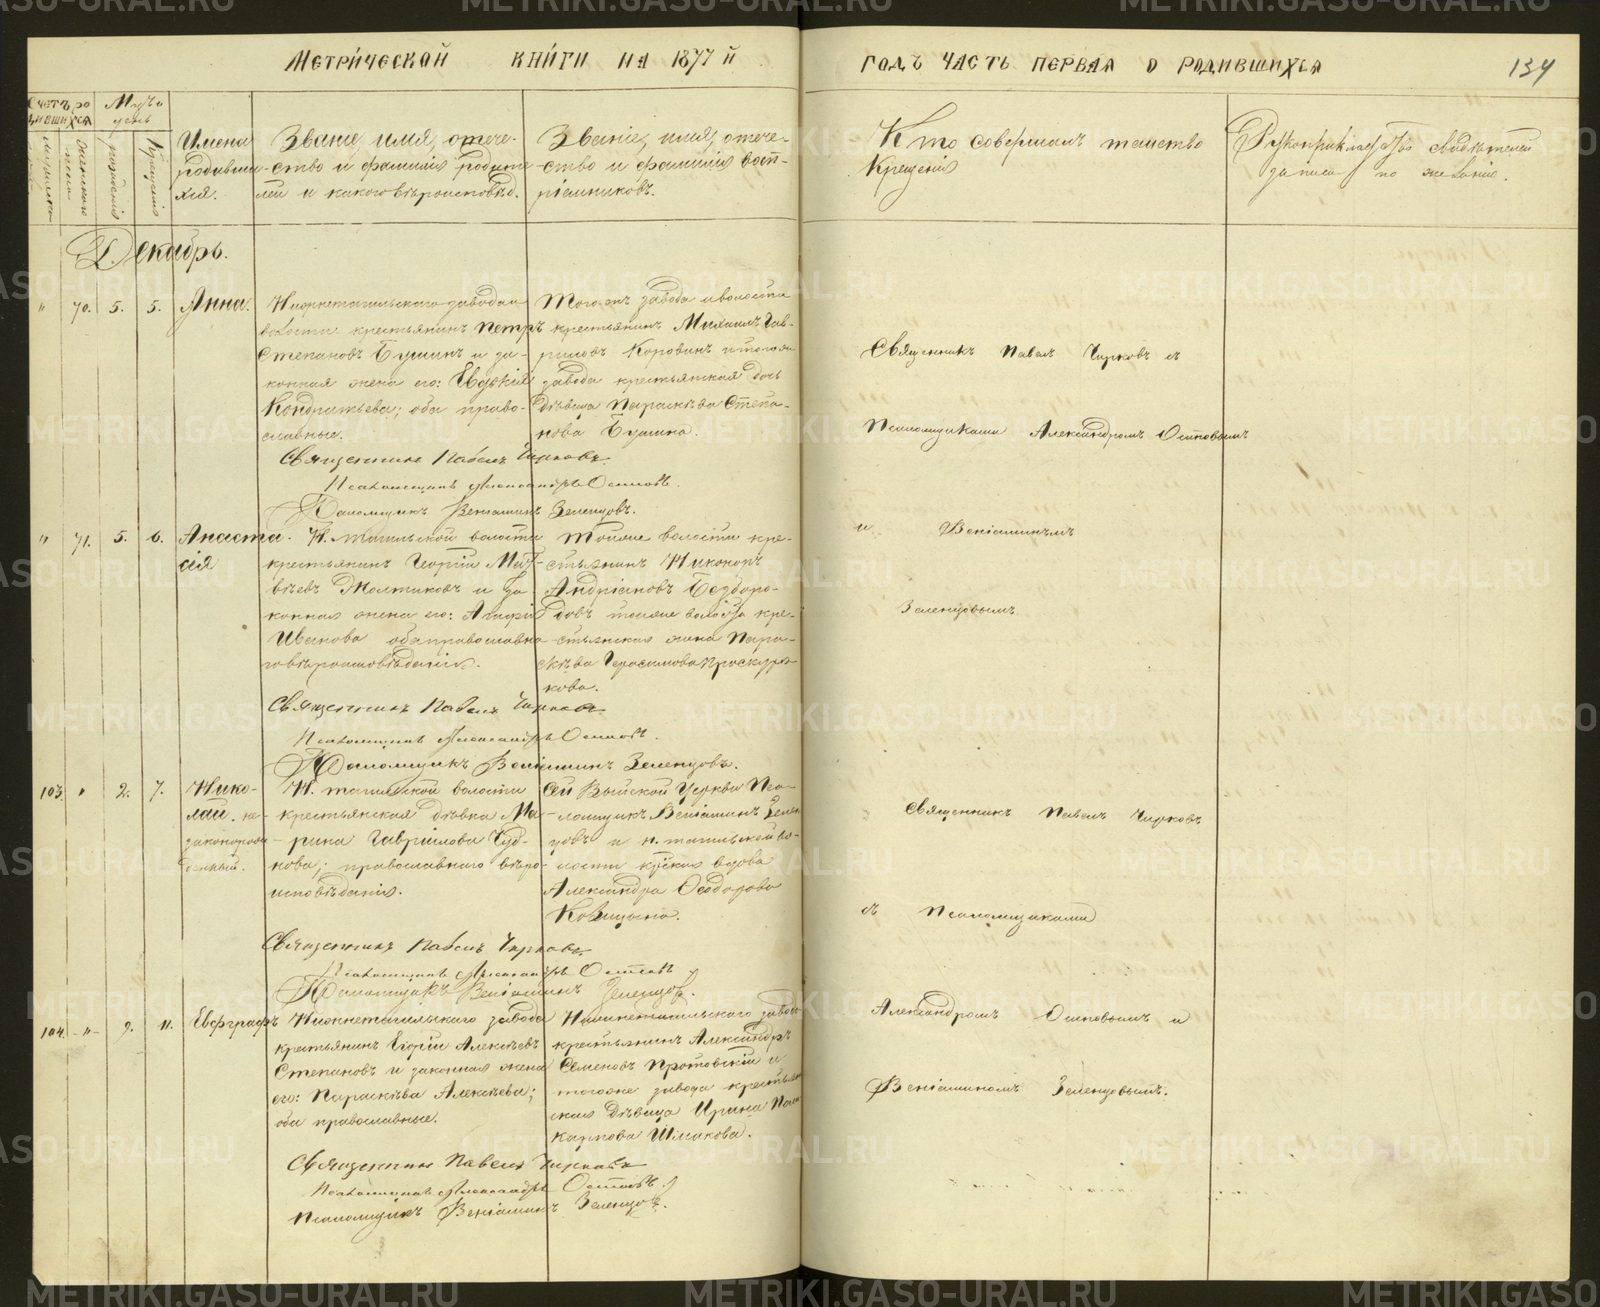 Метрической книги на 1877 й
годъ часть первая о родившихся
134
Счетъ ро
дившихся
Мѣсяцъ
день
рожденія
Крещенія
Имена
родивши
хся.
Званіе, имя, отече-
ство и фамилія родите
лей и какого вѣроисповѣд.
Званіе, имя, отече-
ство и фамилія восп-
ріемниковъ.
Кто совершалъ таинство
Крещенія
Рукоприкладство свидѣтелей
записи по желанію.
Декабрь.
" 70. 5. 5. Анна.
Нижнетагильскаго завода и
волости крестьянинъ Петръ
Степановъ Бушинъ и за-
конная жена его: Евдокія
Кондратьева; оба право-
славные.
Тогоже завода и волости
крестьянинъ Михаилъ Гав-
риловъ Коровинъ и тогоже
завода крестьянская дочь
дѣвица Параскѣва Степа-
нова Бушина.
Священникъ Павелъ Чирковъ
Псаломщикъ Александръ Осиповъ.
Псаломщикъ Веніаминъ Зеленцовъ.
Священникъ Павелъ Чирковъ съ
Псаломщиками Александромъ Осиповымъ
и Веніаминымъ
Зеленцовымъ.
" 71. 5. 6. Анаста
сія
Н. Тагильской волости
крестьянинъ Георгій Мат-
вѣевъ Желтиковъ и за-
конная жена его:
Иванова оба православна
го вѣроисповѣданія.
Тойже волости кре-
стьянинъ Никоноръ
Андріановъ Безборо-
довъ тойже волости кре-
стьянская жена Пара-
скѣва Герасимова Проскуря-
кова.
Священникъ Павелъ Чирковъ
Псаломщикъ Александръ Осиповъ.
Псаломщикъ Веніаминъ Зеленцовъ.
103. " 2. 7. Нико-
лай. не
законорож
денный.
Н. тагильской волости
крестьянская дѣвка Ма-
рина Гавриилова Чуд-
нова; православнаго вѣро-
исповѣданія.
Сей Выйской Церкви Пса-
ломщикъ Веніаминъ Зелен
цовъ и Н. тагильской во-
лости крская вдова
Александра Ѳеодорова
Священникъ Павелъ Чирковъ
Псаломщикъ Александръ Осиповъ
Псаломщикъ Веніаминъ Зеленцовъ.
Священникъ Павелъ Чирковъ
съ Псаломщиками
Александромъ Осиповымъ и
Веніаминомъ Зеленцовымъ.
104. " 9. 11. Евфграфъ
Нижнетагильскаго завода
крестьянинъ Егоръ Алексѣевъ
Степановъ и законная жена
его: Параскѣва Алексѣева;
оба православные.
Нижнетагильскаго завода
крестьянинъ Александръ
Семеновъ Протовскій и
тогоже завода крестьян
ская дѣвица Ирина Поли
карпова Шмакова.
Священникъ Павелъ Чирковъ
Псаломщикъ Александръ Осиповъ.
Псаломщикъ Веніаминъ Зеленцовъ.
METRIKI.GASO-URAL.RU